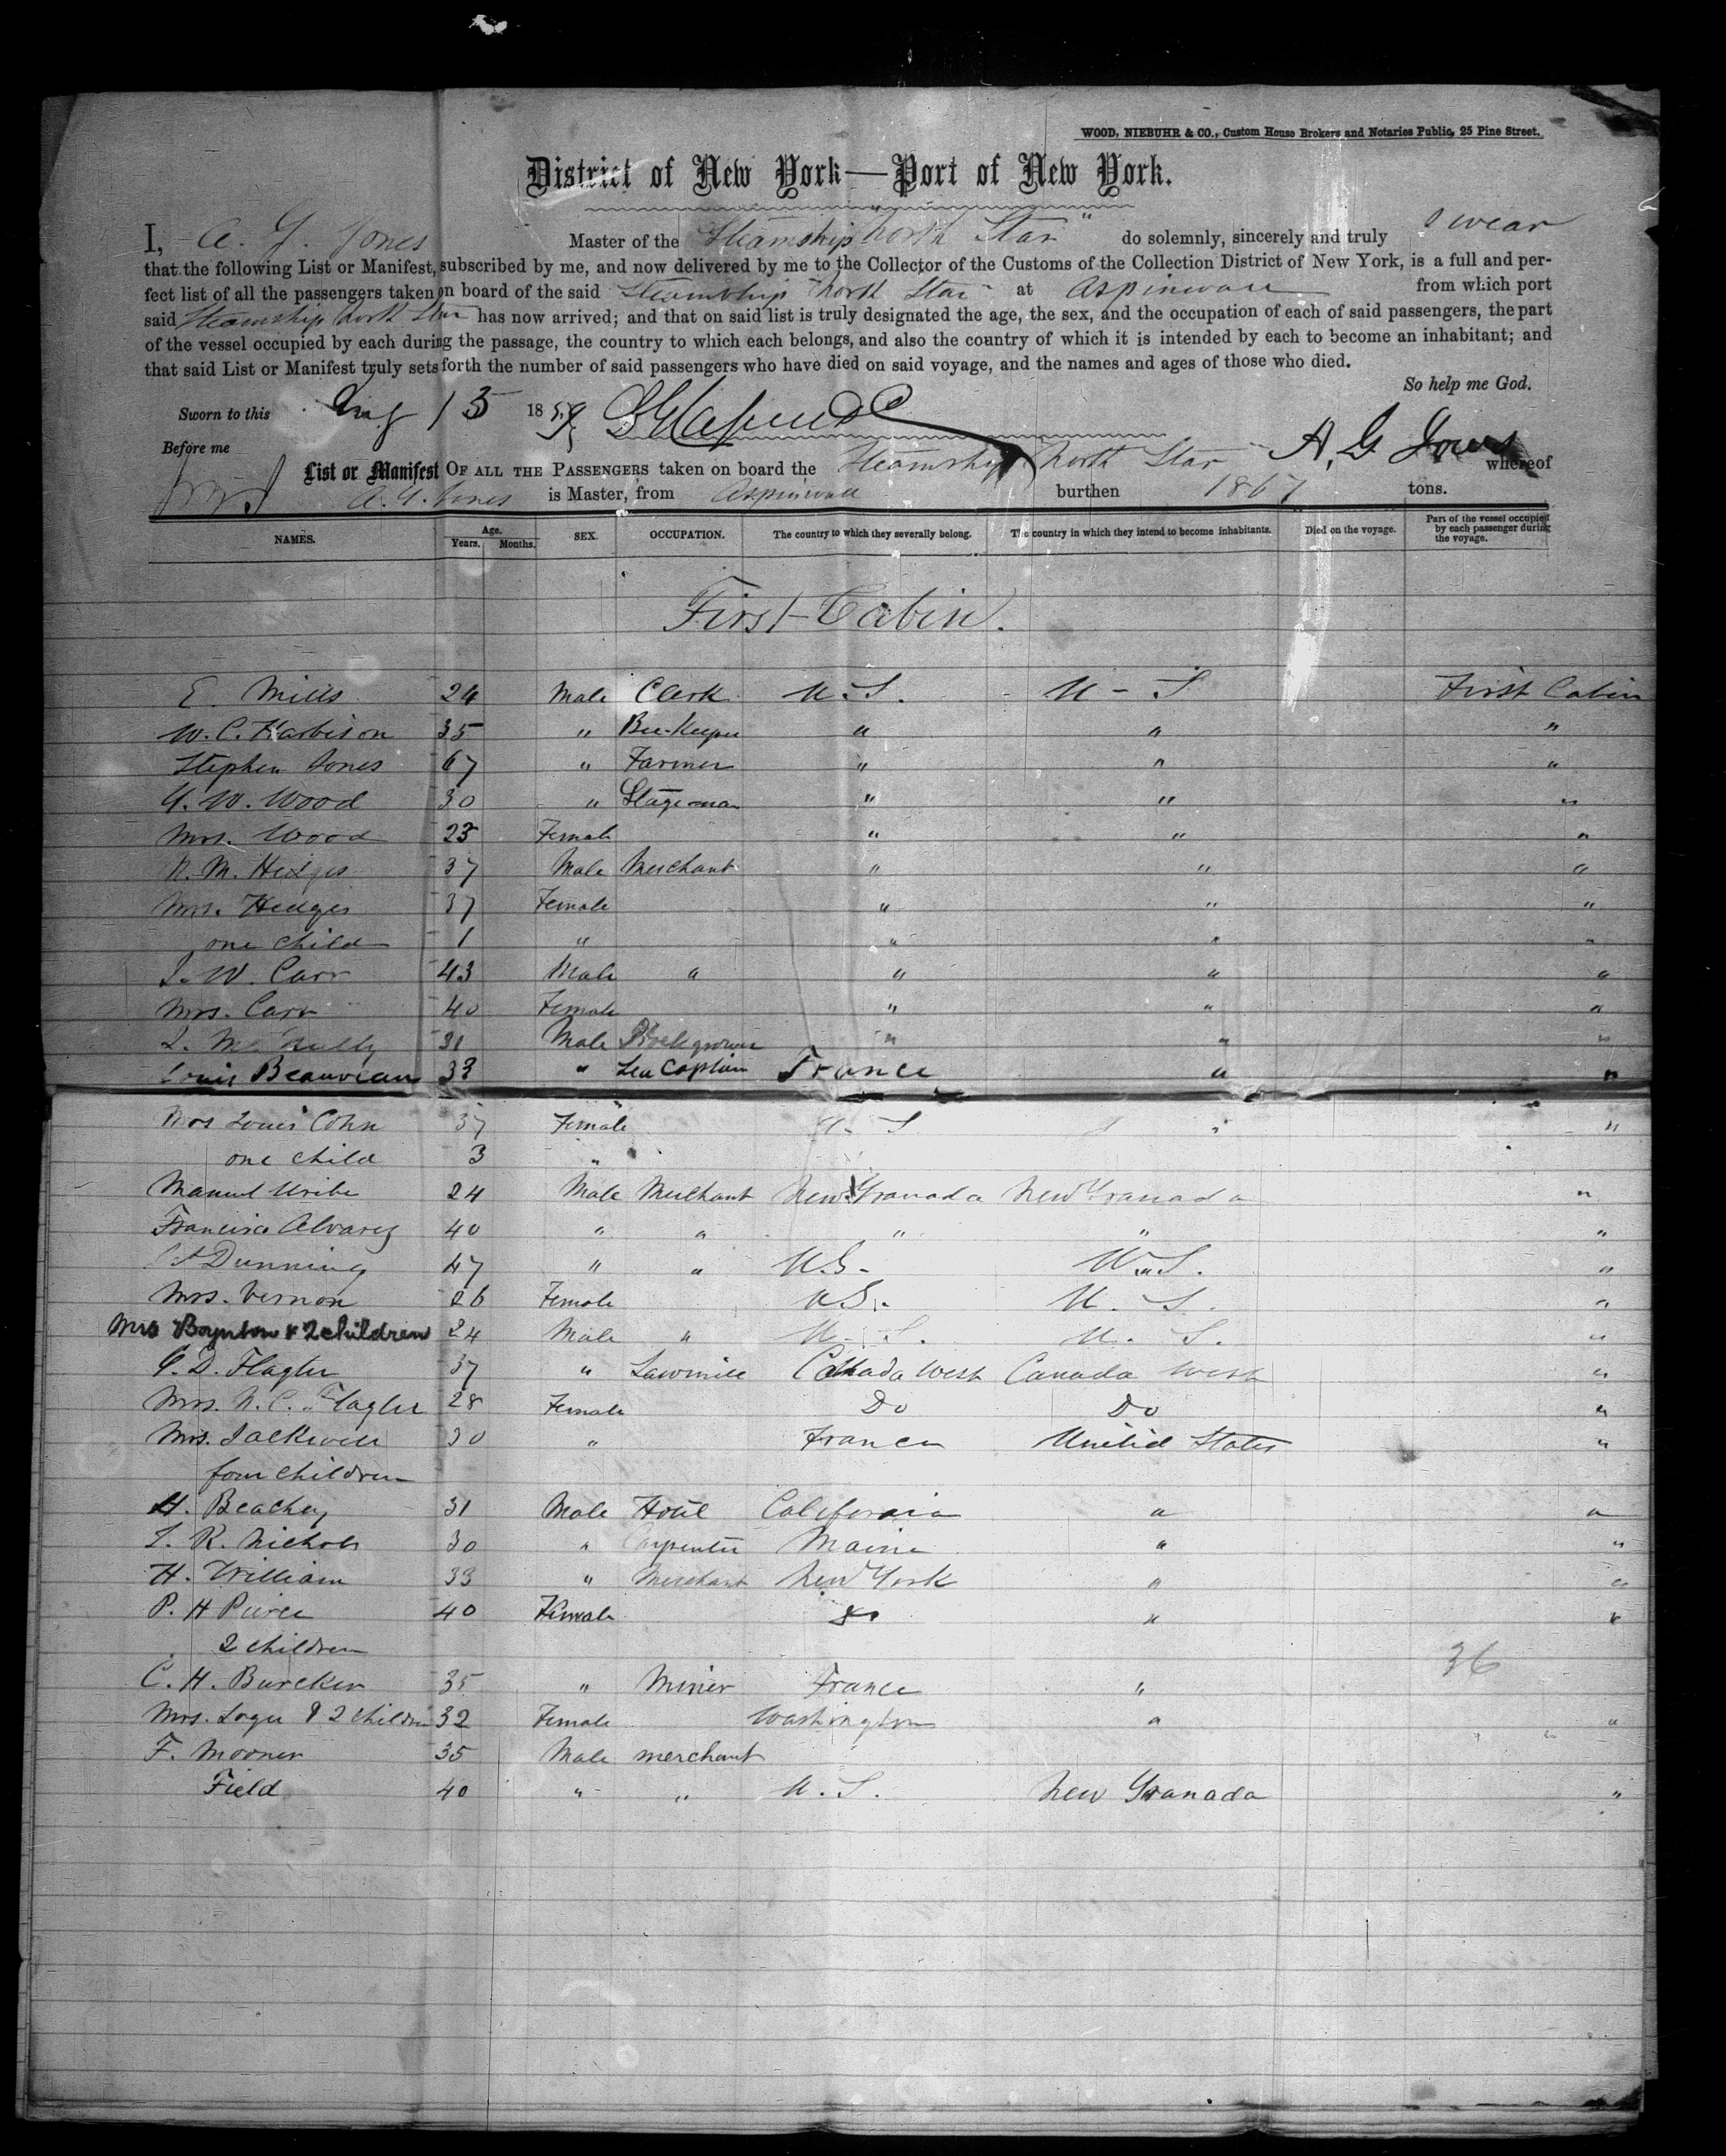 WOOD, NIEBUHR & CO., Custom House Brokers and Notaries Public, 25 Pine Street.
District of New York—Port of New York.
I, A. G. Jones Master of the "Steamship North Star" do solemnly, sincerely and truly swear
that the following List or Manifest, subscribed by me, and now delivered by me to the Collector of the Customs of the Collection District of New York, is a full and per-
fect list of all the passengers taken on board of the said Steamship North Star at Aspinwall from which port
said Steamship North Star has now arrived; and that on said list is truly designated the age, the sex, and the occupation of each of said passengers, the part
of the vessel occupied by each during the passage, the country to which each belongs, and also the country of which it is intended by each to become an inhabitant; and
that said List or Manifest truly sets forth the number of said passengers who have died on said voyage, and the names and ages of those who died.
So help me God.
Sworn to this Aug 15 1859
A, G Jones
Before me
List or Manifest OF ALL THE PASSENGERS taken on board the Steamship North Star whereof
A. G. Jones is Master, from Aspinwall burthen 1867 tons.
NAMES. Age. Years. Months. SEX. OCCUPATION. The country to which they severally belong. The country in which they intend to become inhabitants. Died on the voyage. Part of the vessel occupied by each passenger during the voyage.
First Cabin.
E. Mills 24 Male Clerk U.S. U-S First Cabin
W. C. Harbison 35 " Bee-Keeper " " "
Stephen Jones 67 " Farmer " " "
G. W. Wood 30 " Stage-man " " "
Mrs. Wood 23 Female " " "
N. M. Hedges 37 Male Merchant " " "
Mrs. Hedges 37 Female " " "
one child 1 " " " "
J. W. Carr 43 Male " " " "
Mrs. Carr 40 Female " " "
31 Male Stockgrower " " "
Louis Beauvean 33 " Sea Captain France " "
Mrs Louis Cohn 37 Female U.S " "
one child 3 "
Manuel Uribe 24 Male Merchant New Granada New Granada "
Francisco Alvarez 40 " " " " "
Dunning 47 " " U.S. U.S. "
Mrs. Vernon 26 Female U.S. U.S. "
Mrs Boynton & 2 children 24 Male " U.S. U.S. "
G. D. Flagler 37 " Sawmill Canada West Canada West "
Mrs. N. C. Flagler 28 Female Do Do "
Mrs. Jackwell 30 " France United States "
four children
H. Beachey 31 Male Hotel California " "
L. R. Nichols 30 " Carpenter Maine " "
H. William 33 " Merchant New York " "
P. H Pierce 40 Female do " "
2 children
36
C. H. Burcker 35 " Miner France "
Mrs. Logue & 2 children 32 Female Washington " "
F. Mooner 35 Male merchant
Field 40 " " U.S. New Granada "